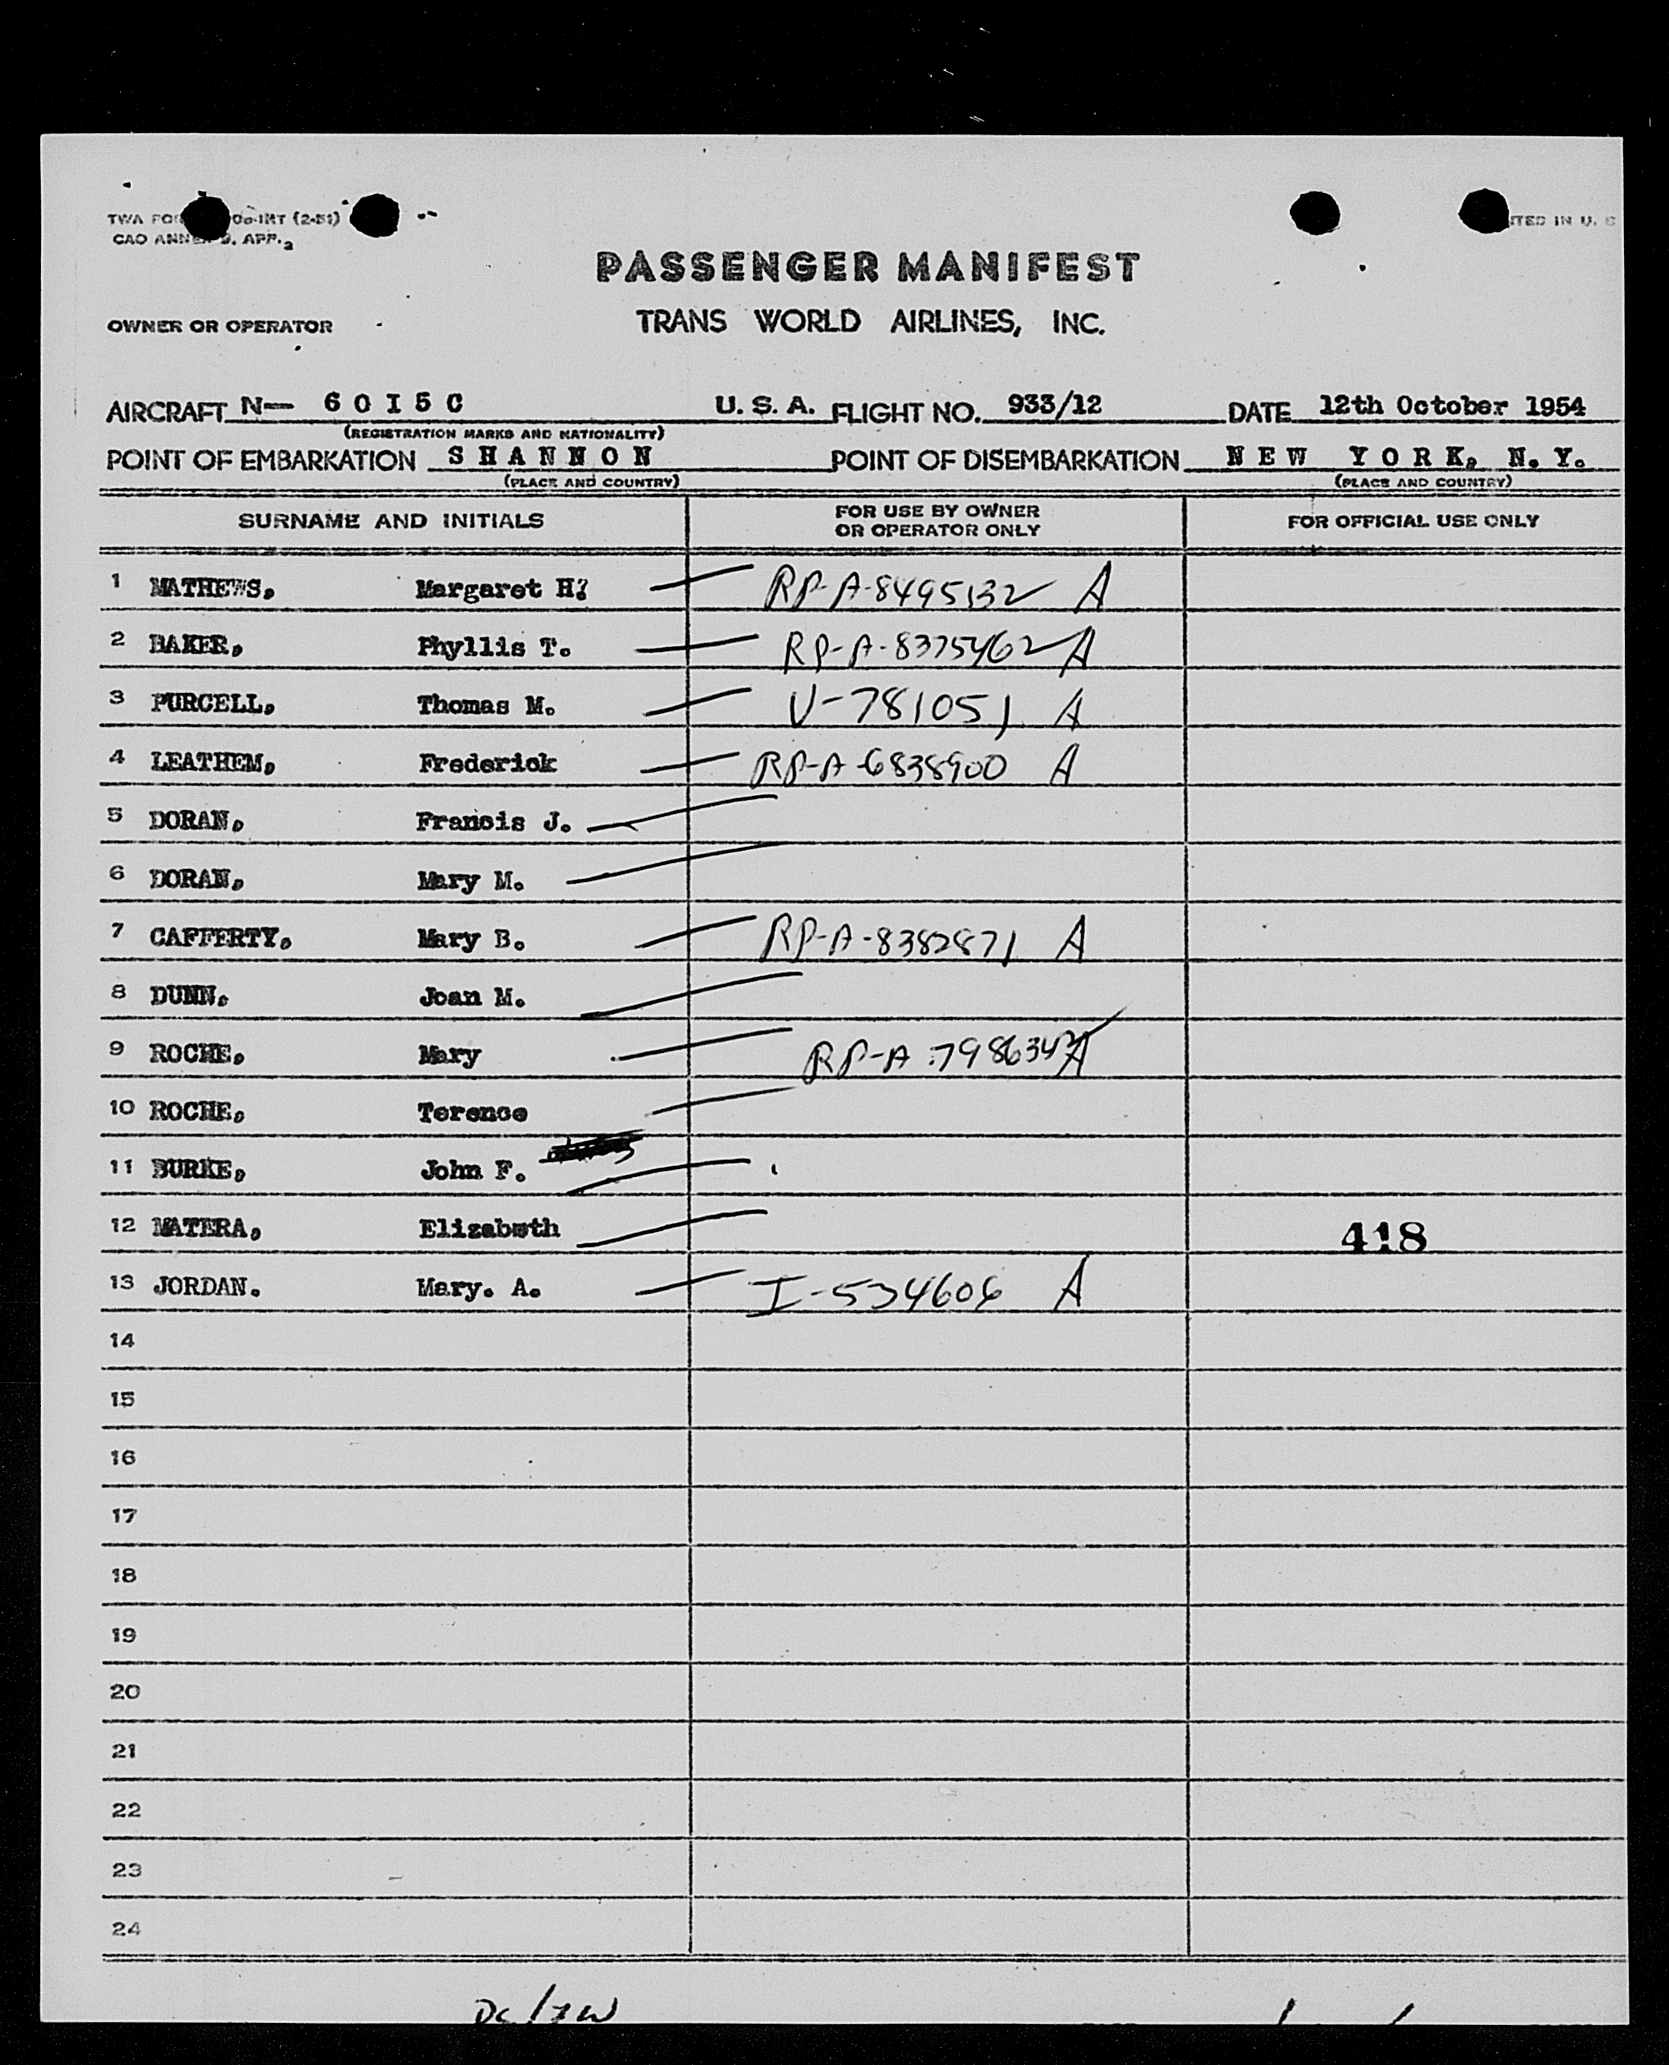 TWA FO 06-INT (2-51)
CAO ANNEX 9, APP. 2
ITED IN U. S
PASSENGER MANIFEST
OWNER OR OPERATOR TRANS WORLD AIRLINES, INC.
AIRCRAFT N— 6 0 I 5 C U. S. A. FLIGHT NO. 933/12 DATE 12th October 1954
(REGISTRATION MARKS AND NATIONALITY)
POINT OF EMBARKATION S H A N N O N POINT OF DISEMBARKATION N E W Y O R K, N. Y.
(PLACE AND COUNTRY) (PLACE AND COUNTRY)
SURNAME AND INITIALS FOR USE BY OWNER OR OPERATOR ONLY FOR OFFICIAL USE ONLY
1 MATHEWS, Margaret H? RP-A-8495132 A
2 BAKER, Phyllis T. RP-A-8375462 A
3 PURCELL, Thomas M. V-781051 A
4 LEATHEM, Frederick RP-A-6838900 A
5 DORAN, Francis J.
6 DORAN, Mary M.
7 CAFFERTY, Mary B. RP-A-8382871 A
8 DUNN, Joan M.
9 ROCHE, Mary RP-A A
10 ROCHE, Terence
11 BURKE, John F.
12 MATERA, Elizabeth 418
13 JORDAN. Mary. A. I-534606 A
14
15
16
17
18
19
20
21
22
23
24